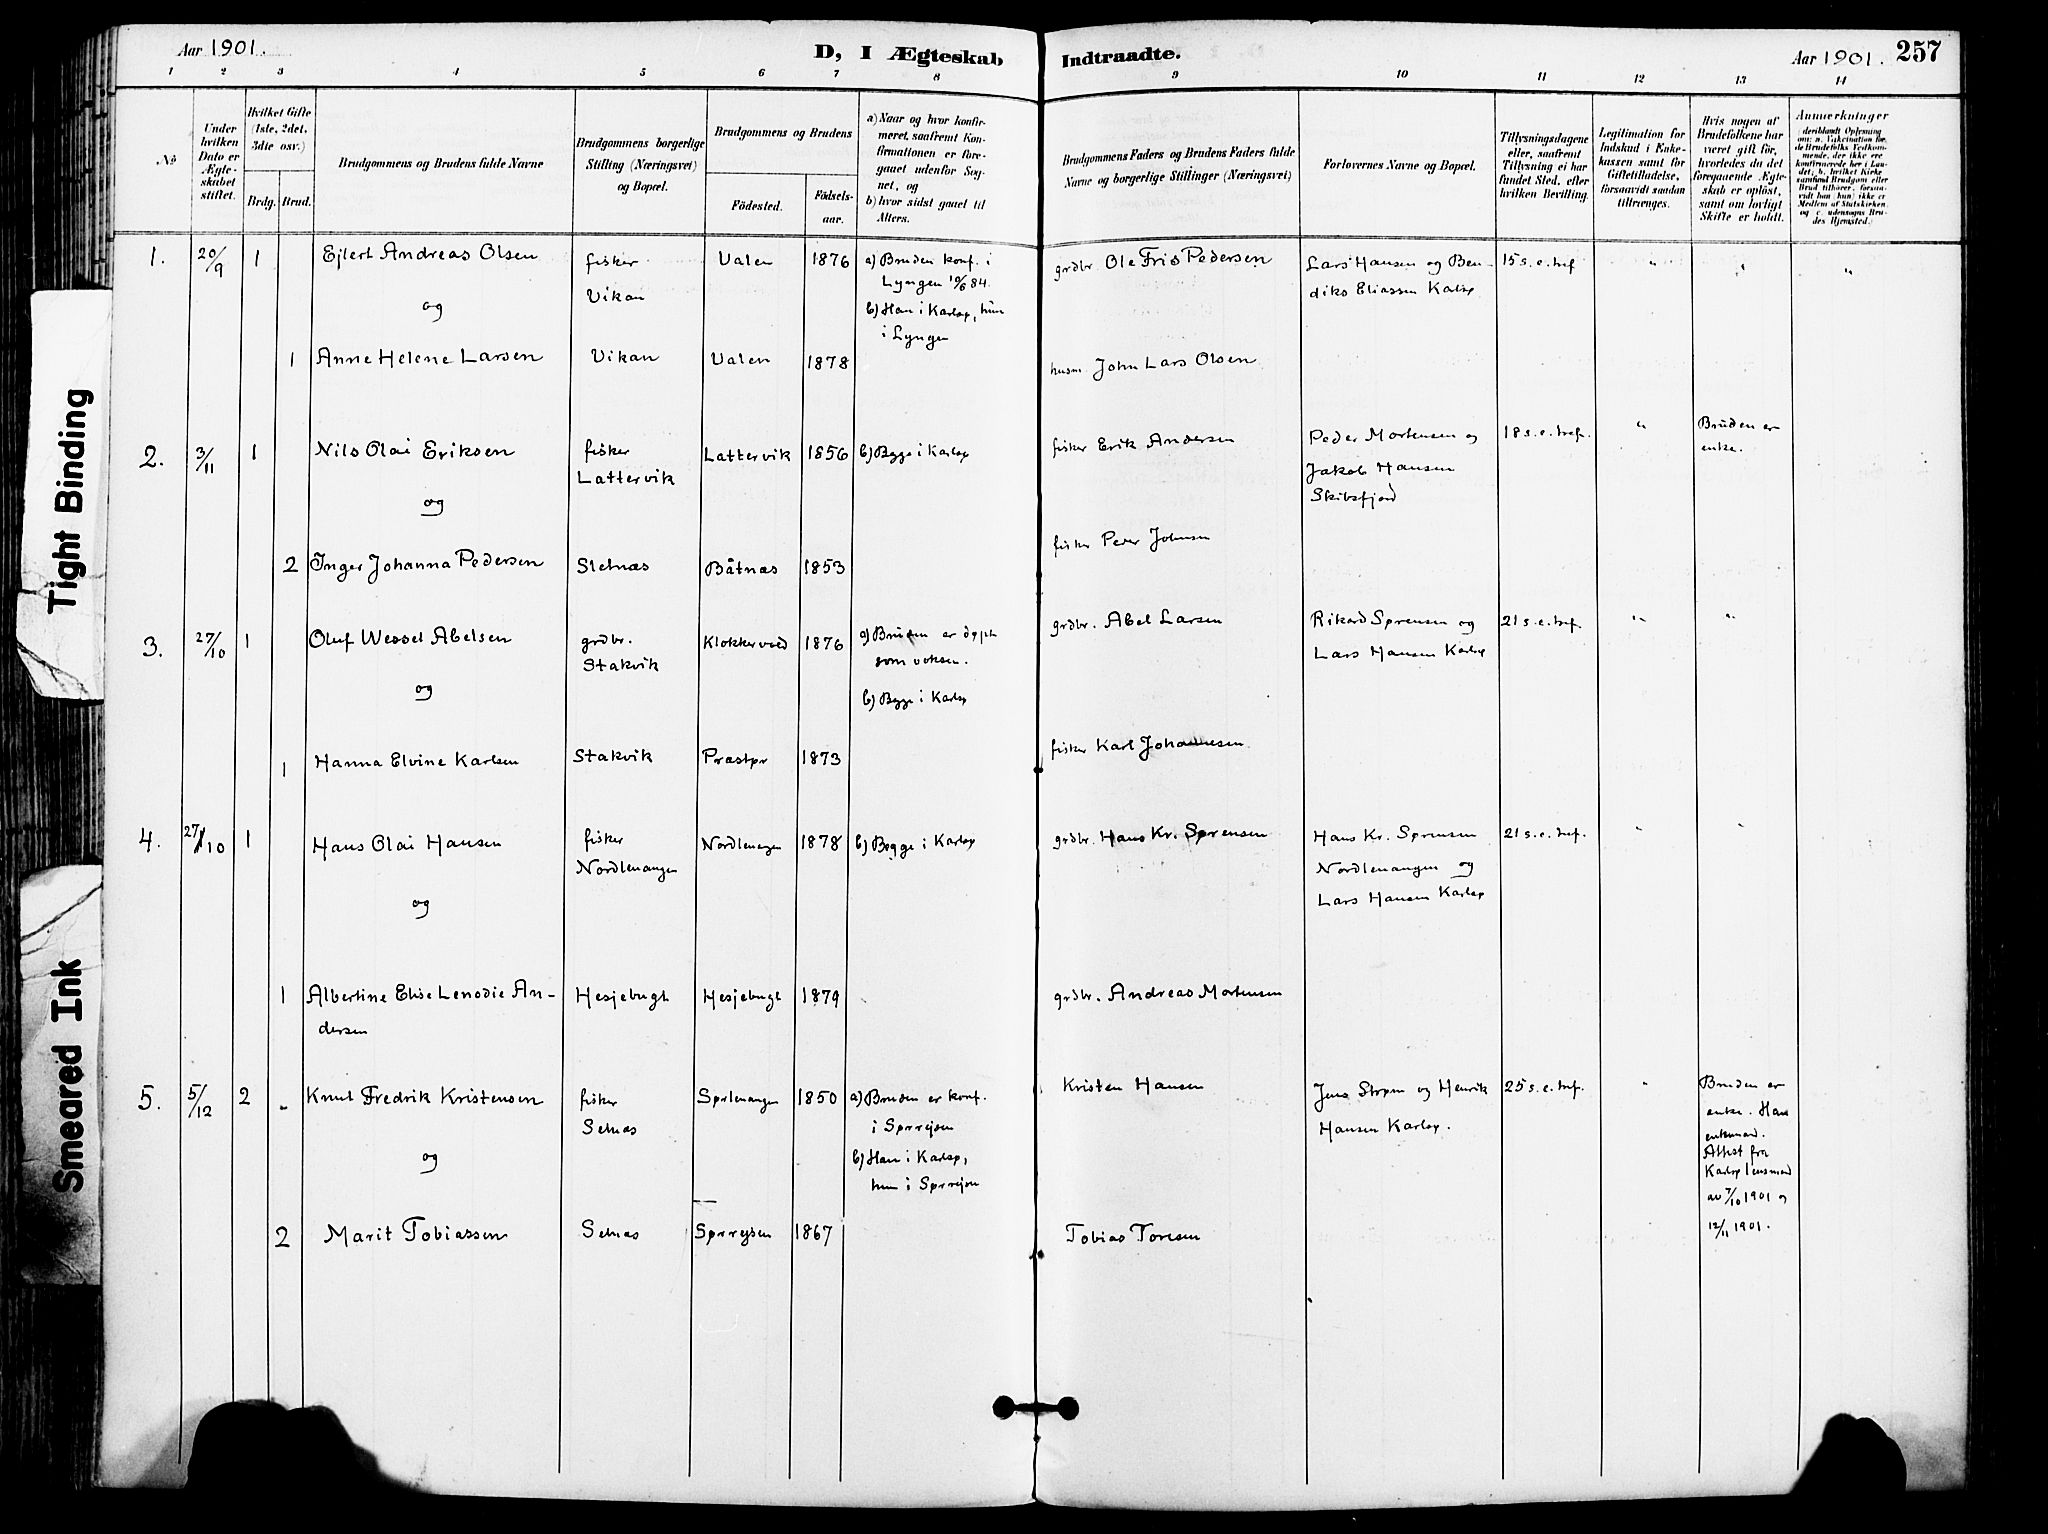 Aar 1901.
D, I Ægteskab Indtraadte.
Aar 1901.
257
1 2 3 4 5 6 7 8 9 10 11 12 13 14
No
Under hvilken Dato er Ægteskabet stiftet.
Hvilket Gifte (1ste, 2det, 3dte osv.)
Brdg. Brud.
Brudgommens og Brudens fulde Navne
Brudgommens borgerlige Stilling (Næringsvei) og Bopæl.
Brudgommens og Brudens
Fødested. Fødsels-aar.
a) Naar og hvor konfirmeret, saafremt Konfirmationen er foregaaet udenfor Sognet, og
b) hvor sidst gaaet til Alters.
Brudgommens Faders og Brudens Faders fulde Navne og borgerlige Stillinger (Næringsvei)
Forlovernes Navne og Bopæl.
Tillysningsdagene eller, saafremt Tillysning ei har fundet Sted, efter hvilken Bevilling.
Legitimation for Indskud i Enkekassen samt for Giftetilladelse, forsaavidt saadan tiltrænges.
Hvis nogen af Brudefolkene har været gift før, hvorledes da det foregaaende Ægteskab er opløst, samt om lovligt Skifte er holdt.
Anmerkninger
1. 20/9 1 Ejlert Andreas Olsen
fisker
Vikan
Valen 1876
a) Bruden konf. i
Lyngen 10/6 84.
b) Han i Karlsø, hun
i Lyngen
grdbr. Ole Fris Pedersen
Lars Hansen og Ben-
diks Eliassen Karlsø
15 s. e. tref. " " "
og
1 Anne Helene Larsen Vikan Valen 1878
husm John Lars Olsen
2. 3/11 1 Nils Olai Eriksen
fisker
Lattervik
Lattervik 1856 b) Begge i Karlsø
fisker Erik Andersen
Peder Mortensen og
Jakob Hansen
Skibsfjord
18 s. e. tref. "
Bruden er
enke.
og
2 Inger Johanna Pedersen Sletnæs Båtnæs 1853
fisker Peder Johnsen
3. 27/10 1 Oluf Wessel Abelsen
grdbr.
Stakvik
Klokkervold 1876
a) Bruden er døpt
som voksen.
b) Begge i Karlsø
grdbr. Abel Larsen
Rikard Sørensen og
Lars Hansen Karlsø
21 s. e. tref. " "
og
1 Hanna Elvine Karlsen Stakvik Præstgr 1873
fisker Karl Johannesen
4. 27/10 1 Hans Olai Hansen
fisker
Nordlenangen
Nordlenangen 1878 b) Begge i Karlsø
grdbr. Hans Kr. Sørensen
Hans Kr. Sørensen
Nordlenangen og
Lars Hansen Karlsø
21 s. e. tref. " "
og
1 Albertine Elise Lenodie An-
dersen
Hesjebugt Hesjebugt 1879
grdbr. Andreas Mortensen
5. 5/12 2 " Knut Fredrik Kristensen
fisker
Selnæs
Sørlenangen 1850
a) Bruden er konf.
i Sørreisen
b) Han i Karlsø,
hun i Sørreisen
Kristen Hansen
Jens Strøm og Henrik
Hansen Karlsø.
25 s. e. tref. "
Bruden er
enke. Han
enkemand.
Attest fra
Karlsø lensmand
av 7/10 1901 og
12/11 1901.
og
2 Marit Tobiassen Selnæs Sørreisen 1867
Tobias Toresen
Tight Binding
Smeared Ink